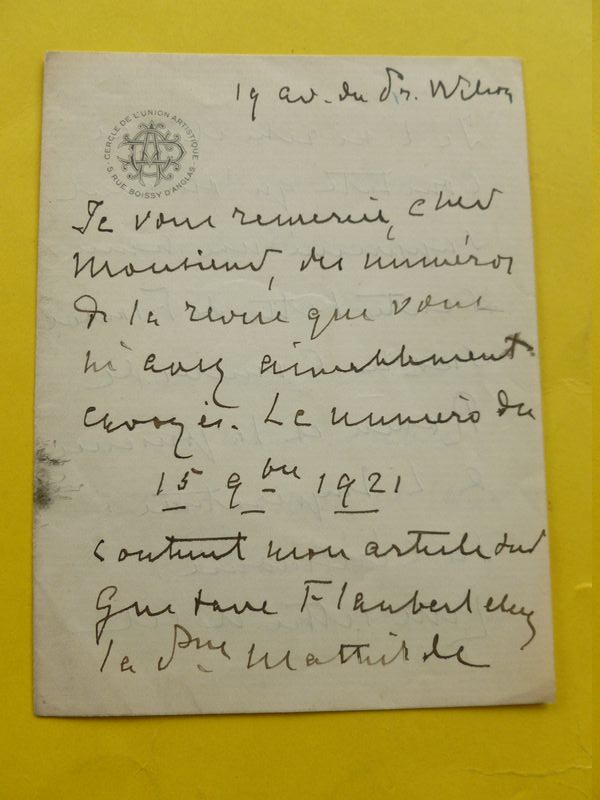 19 av. du Pr. Wilson
CERCLE DE L'UNION ARTISTIQUE
5 RUE BOISSY D'ANGLAS
Je vous remercie, cher
Monsieur, des numéros
de la revue que vous
m'avez aimablement
envoyés. Le numéro du
15 9bre 1921
contient mon article sur
Gustave Flaubert chez
la Psse Mathilde